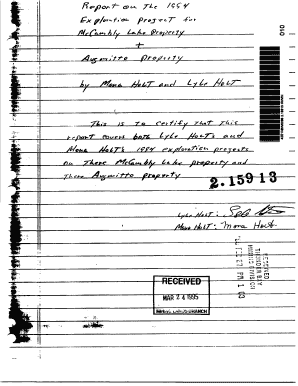 Report on The 1994
Exploration Project for
McCombly Lake Property
+
Augmitto Property
by Mona Holt and Lyle Holt
This is to certify That This
report covers both Lyle Holt's and
Mona Holt's 1994 exploration projects
on There McCombly Lake property and
There Augmitto property
2.15913
Lyle Holt:
Mona Holt: Mona Holt
RECEIVED
MAR 24 1995
MINING LANDS BRANCH
010
RECEIVED